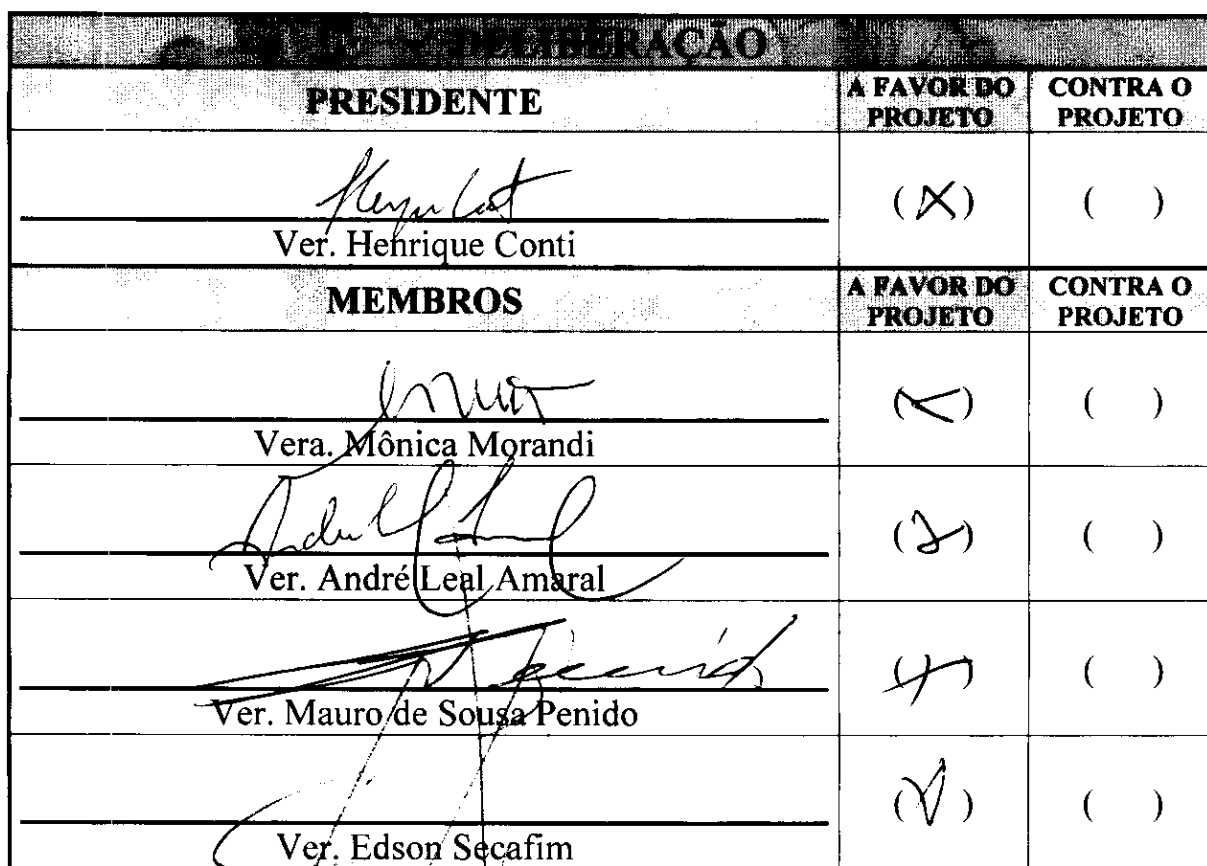 DELIBERAÇÃO
PRESIDENTE
A FAVOR DO PROJETO
CONTRA O PROJETO
(X)
( )
Ver. Henrique Conti
MEMBROS
A FAVOR DO PROJETO
CONTRA O PROJETO
( )
Vera. Mônica Morandi
( )
Ver. André Leal Amaral
( )
Ver. Mauro de Sousa Penido
( )
Ver. Edson Secafim